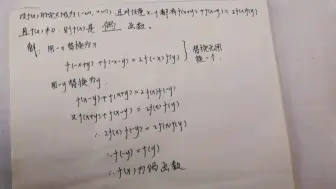 设f(x)的定义域为(-∞,+∞),且对任意x,y都有f(x+y)+f(x-y)=2f(x)f(y)
且f(x)≠0 则f(x)是 偶 函数.
解:用-x替换为x
f(-x+y)+f(-x-y)=2f(-x)f(y)
替换允用
换一个.
用-y替换为y.
f(x-y)+f(x+y)=2f(x)f(-y)
又f(x+y)+f(x-y)=2f(x)f(y)
∴2f(x)f(-y)=2f(x)f(y)
∴f(-y)=f(y)
∴f(x)为偶函数